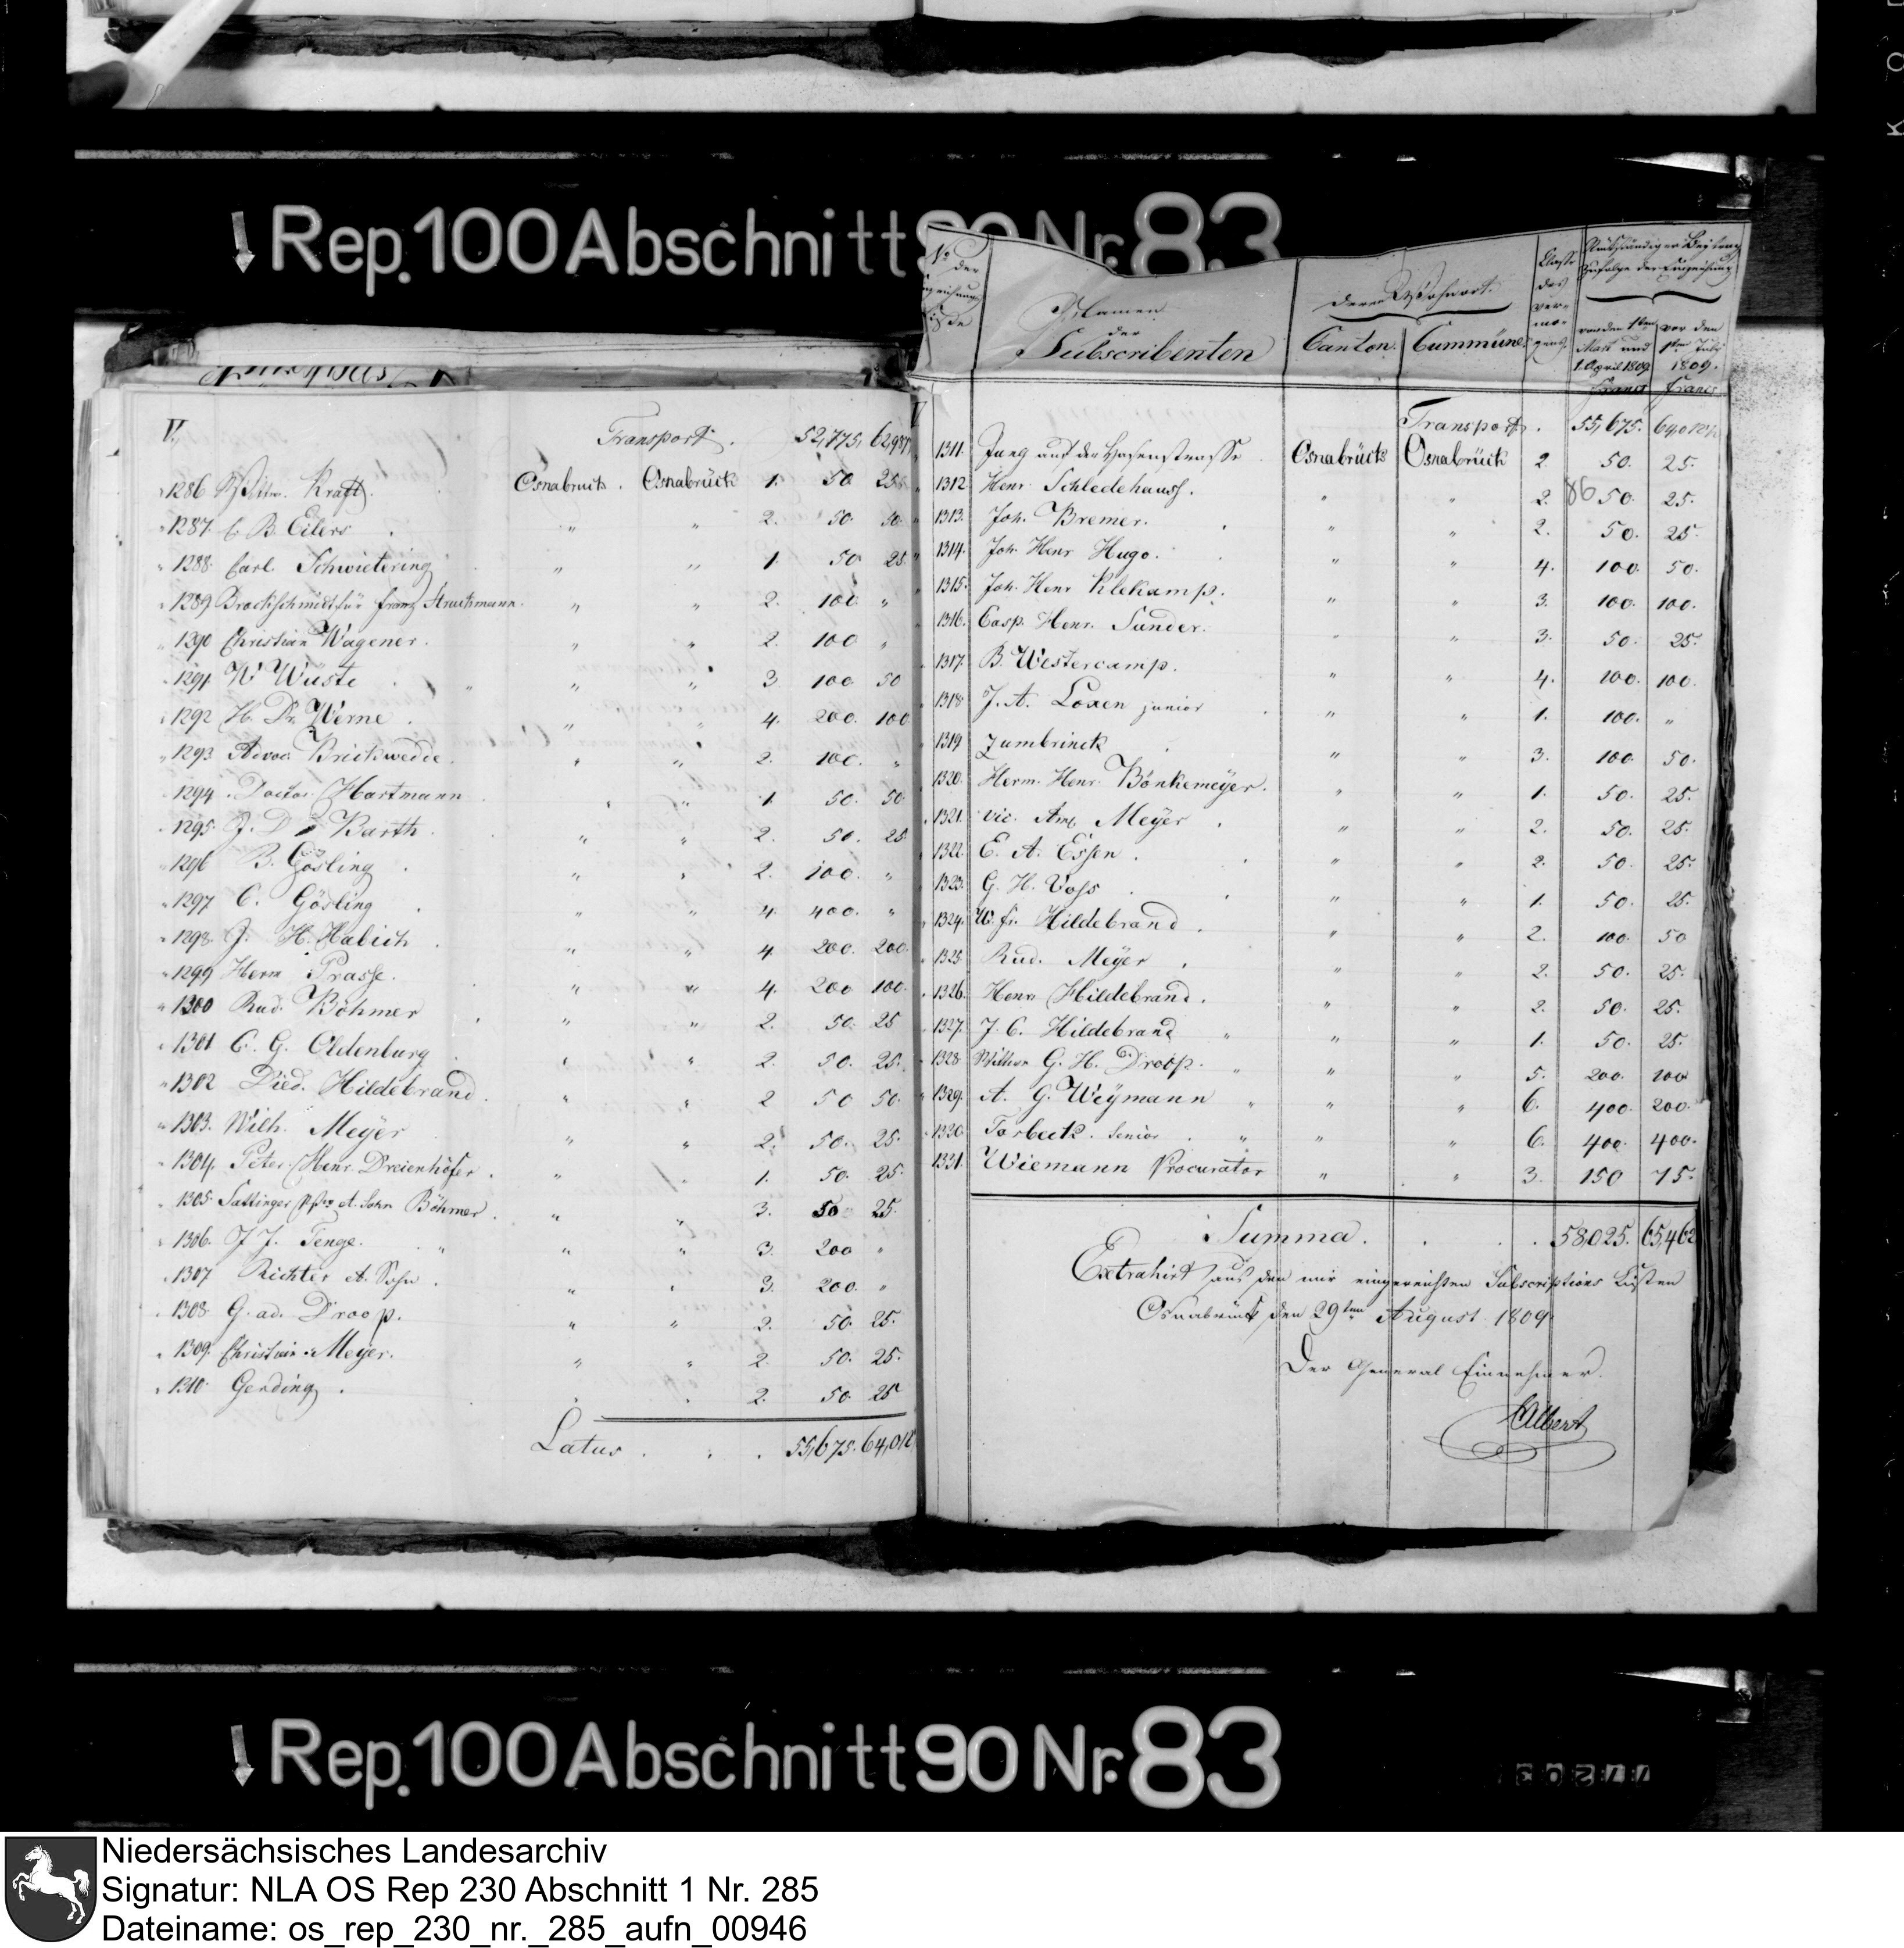 Rep. 100 Abschnitt 90 Nr. 83
V.
Transport. 52,775. 62,9
1286 Witwe Kraft. Osnabrück. Osnabrück 1. 50 25
" 1287. C. B. Eilers " " 2. 50. 50.
" 1288. Carl. Schwietering " " 1. 50 25
" 1289 Brockschmidt für franz Struckmann. " " 2. 100 "
" 1290 Christian Wagener. " " 2. 100 "
" 1291. W Wüste " " 3 100 50
" 1292 H. Dr. Werne. " " 4. 200. 100
" 1293. Advoc. Brickwedde. " " 2. 100. "
1294. Doctor Hartmann " " 1. 50. 50
1295. J. D. Barth. " " 2. 50. 25
1296 B. Gösling. " " 2. 100. "
" 1297 C. Gösling. " " 4. 400. "
" 1298. J. H. Habich. " " 4. 200. 200.
" 1299 Herm Prasse. " " 4. 200 100.
" 1300 Rud. Böhmer " " 2. 50. 25
" 1301 C. G. Oldenburg " " 2. 50. 25.
" 1302 Died. Hildebrand. " " 2 50 50.
" 1303. Wilh. Meÿer " " 2. 50. 25.
" 1304. Peter Henr. Dreienhöfer. " " 1. 50. 25.
" 1305. Sattinger et. Sohn Böhmer. " " 3. 50 25.
" 1306. J J. Tenge. " " 3. 200 "
" 1307 Richter et. Sohn. " " 3. 200. "
" 1308. G. ad. Droop. " " 2. 50. 25.
" 1309. Christian Meÿer. " " 2. 50. 25.
" 1310. Gerding. " " 2. 50 25
Latus . . . 55,675. 64,012
No. der
Namen
der
Subscribenten
deren Wohnort.
Canton. Commüne.
Classe
des
Ver-
mö-
gens.
Rückständiger Beytrag
zufolge der Einzeichnung
vor den 1ten
März und
1. April 1809.
Francs
vor den
1ten July
1809.
Francs
V
Transport. 55,675. 64,012
1311. Jung auf der Hasenstrasse. Osnabrück Osnabrück 2 50. 25.
1312. Henr. Schledehauss. " " 2. 50. 25.
86
1313. Joh. Bremer. " " 2. 50. 25.
1314. Joh. Henr Hugo. " " 4. 100. 50.
1315. Joh. Henr Klekamp. " " 3. 100. 100.
1316. Casp. Henr. Sunder. " " 3. 50. 25.
1317. B. Westercamp. " " 4. 100. 100.
1318. J. A. Loxen junior " " 1. 100. "
1319 Zumbrinck " " 3. 100 50.
1320. Herm. Henr. Bönkemeÿer. " " 1. 50. 25.
1321. vic. Meÿer. " " 2. 50. 25.
1322. E. A. Essen. " " 2. 50. 25.
1323. G. H. Voss " " 1. 50. 25.
1324. W. fr. Hildebrand. " " 2. 100. 50
1325. Rud. Meÿer. " " 2. 50. 25.
1326. Henr Hildebrand. " " 2. 50. 25.
1327. J. C. Hildebrand " " 1. 50. 25.
1328. Wittwe G. H. Droop. " " 5. 200. 100
1329. A. G. Weÿmann " " 6. 400. 200.
1330. Torbeck. Senior. " " 6. 400. 400.
1331. Wiemann Procurator " " 3. 150 75.
Summa. . . . 58,025. 65,462
Extrahirt aus den mir eingereichten Subscriptions Listen
Osnabrück den 29ten August 1809
Der General Einnehmer.
Albert
Rep. 100 Abschnitt 90 Nr. 83
Niedersächsisches Landesarchiv
Signatur: NLA OS Rep 230 Abschnitt 1 Nr. 285
Dateiname: os_rep_230_nr._285_aufn_00946